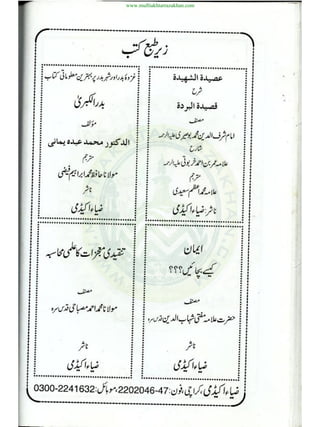 www.muftiakhtarrazakhan.com
زیر طبع کتب
عصیدة الشهیدة
شرح
قصیدة البردة
مصنف
امام شرف الدین محمد بوصیری علیہ الرحمہ
شارح
علامہ عمر بن احمد خرپوتی علیہ الرحمہ
مترجم
علامہ محمد اعظم سعیدی
ناشر: ضیاء اکیڈمی
غزوۂ بدر اور شہر بدر پر بہترین معلوماتی کتاب
بدر الکبریٰ
مؤلف
الدکتور محمد عبدہ یمانی
مترجم
مولانا حافظ محمد ابراہیم فیضی
ناشر
ضیاء اکیڈمی
ایمان
کیسے بچائیں؟؟؟
مصنف
حضرت علامہ مفتی شہاب الدین قدس سرہ
ناشر
ضیاء اکیڈمی
تنقیدی معجزات کا علمی محاسبہ
مصنف
مولانا محمد احمد مصباحی قدس سرہ
ناشر
ضیاء اکیڈمی
ضیاء اکیڈمی، کراچی، فون: 47-2202046، موبائل: 2241632-0300